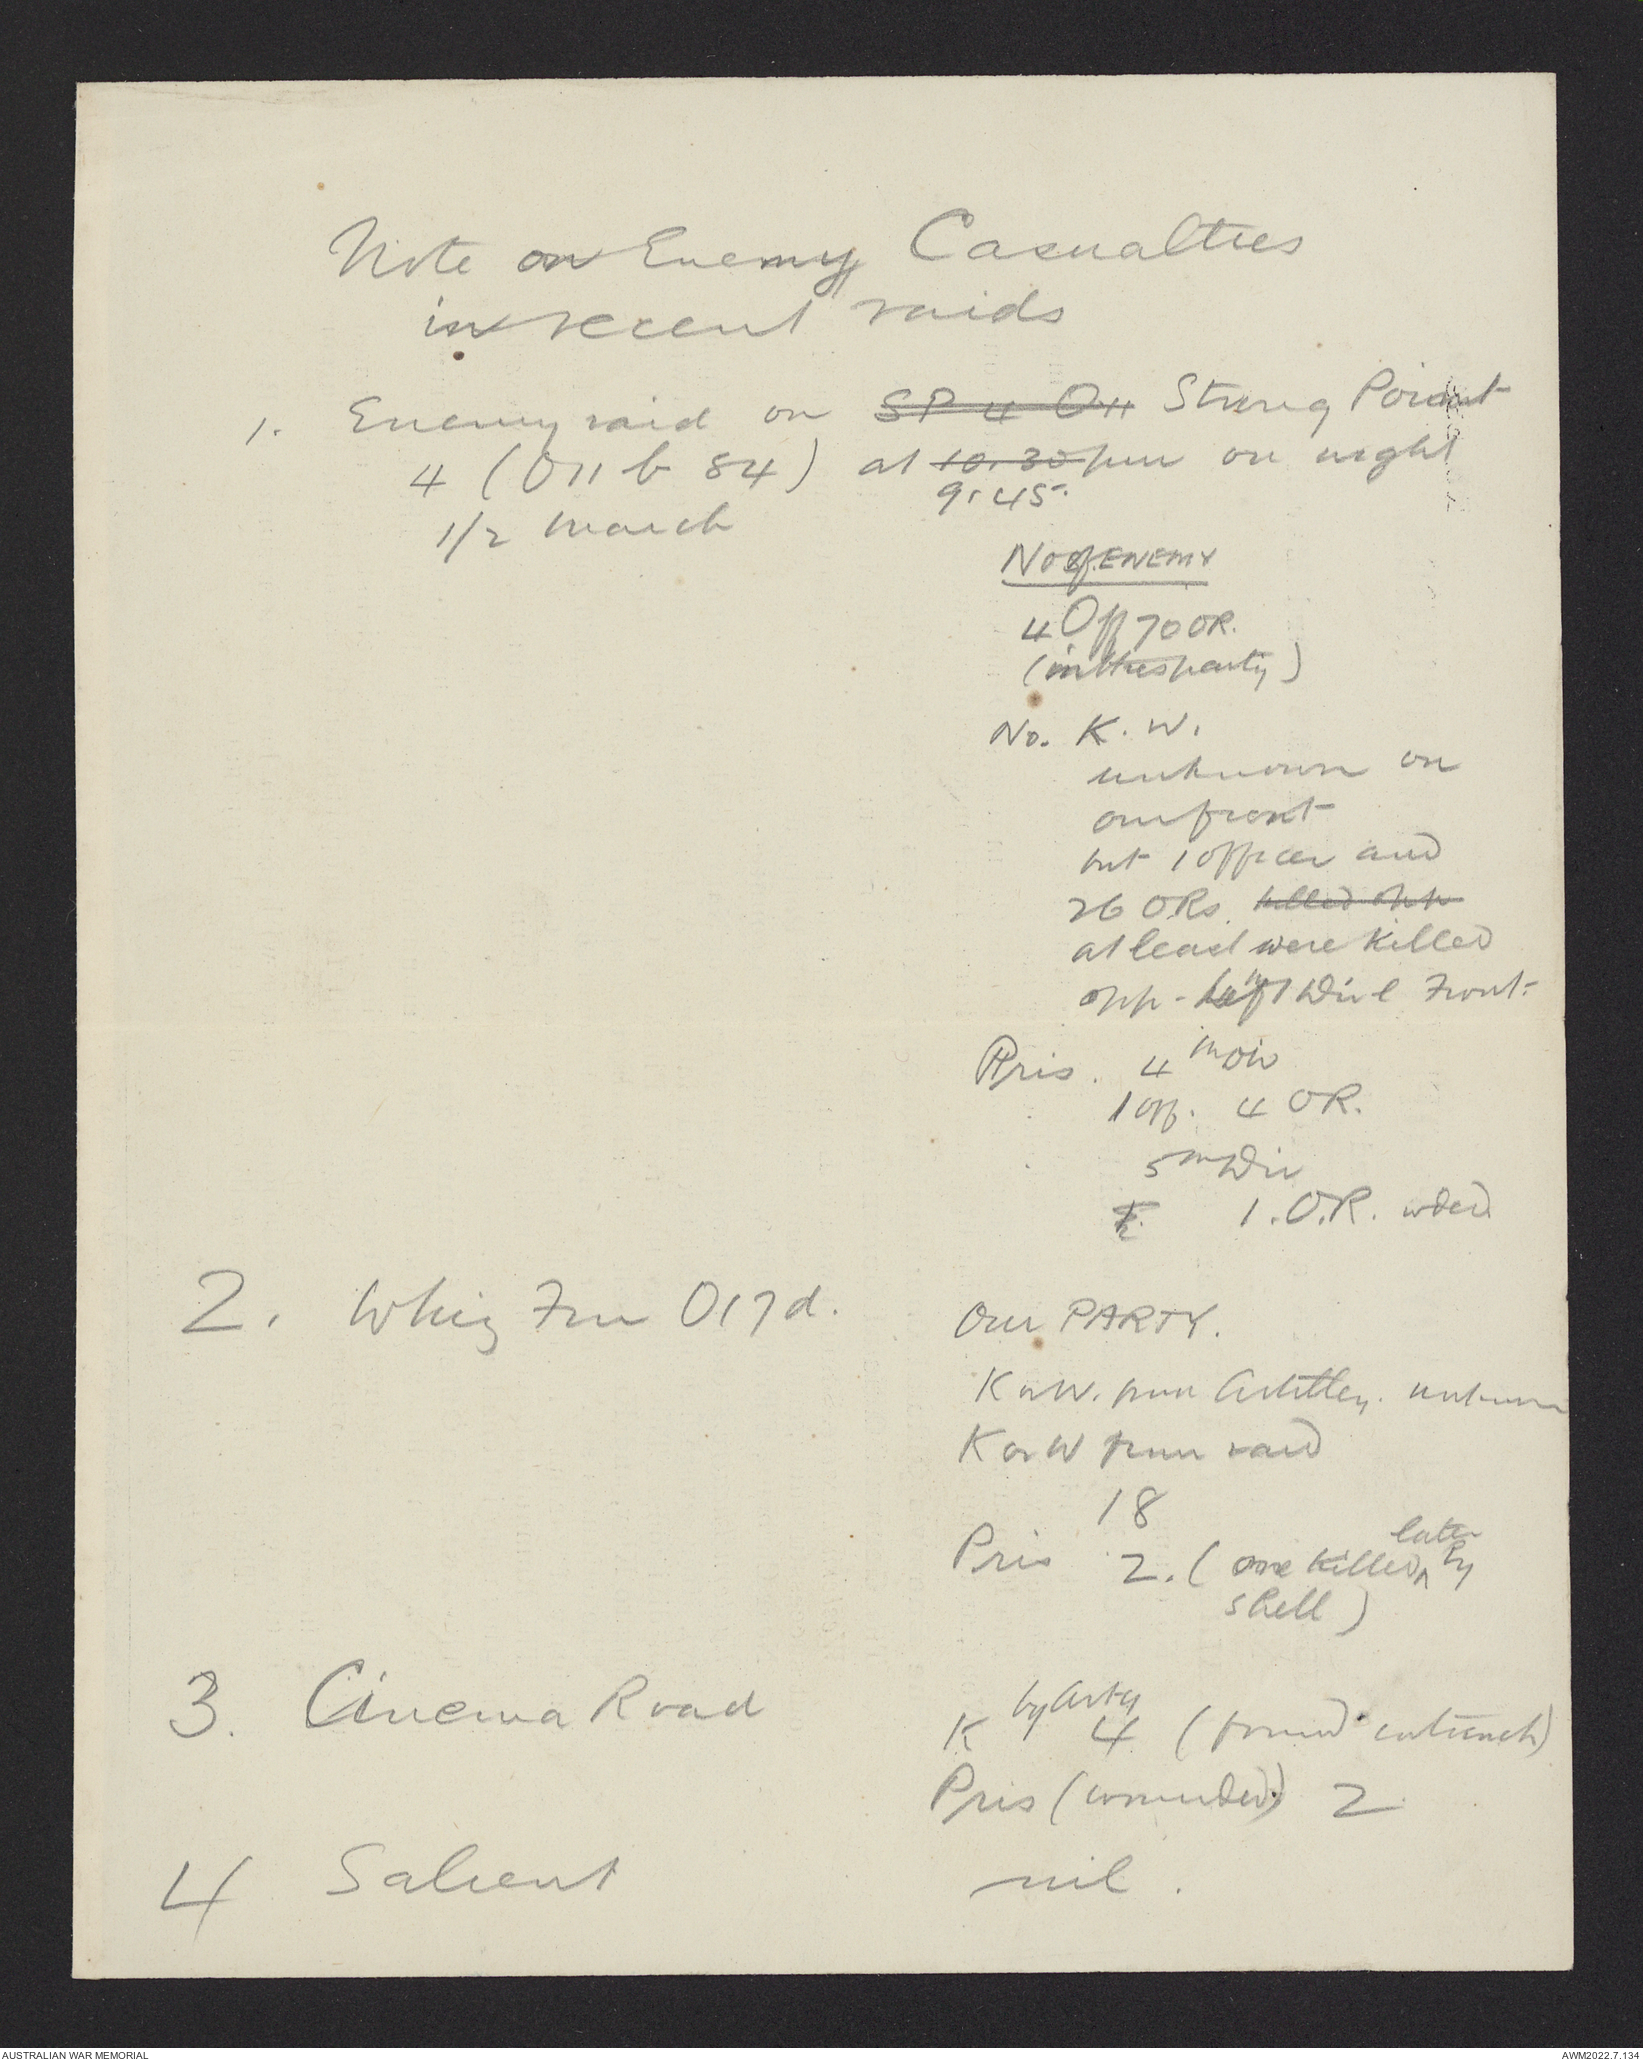 Note on Enemy Casualties
in recent raids
1. Enemy raid on SP 4 O11 Strong Point
4 (O11 b 84) at 10.30 pm on night
9.45
1/2 March
No of ENEMY
4 Off 70 OR.
(in this party)
No. K. W.
unknown on
our front
but 1 officer and
26 ORs. killed opp
at least were killed
opp - left Div l Front.
Pris. 4th Div
1 off. 4 OR.
5th Div
1. O.R. wded.
2. Whiz Fm O17d.
Our PARTY.
K or W. from Artillery. unknown
K or W from raid
18
later
Pris 2. (one killed ^ by
shell)
3. Cinema Road
by Arty
K 4 (found in trench)
Pris (wounded) 2
4 Salient nil.
AUSTRALIAN WAR MEMORIAL AWM2022.7.134